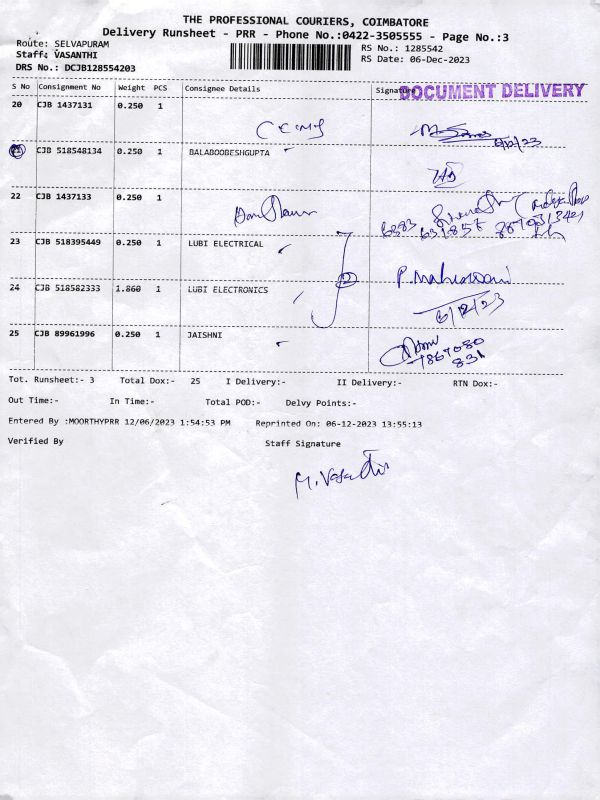 THE PROFESSIONAL COURIERS, COIMBATORE
Delivery Runsheet - PRR - Phone No.:0422-3505555 - Page No.:3
Route: SELVAPURAM
RS No.: 1285542
Staff: VASANTHI
RS Date: 06-Dec-2023
DRS No.: DCJB128554203
S No Consignment No Weight PCS Consignee Details Signature
DOCUMENT DELIVERY
20 CJB 1437131 0.250 1
6/12/23
21 CJB 518548134 0.250 1 BALABOOBESHGUPTA
22 CJB 1437133 0.250 1
6383 631857
23 CJB 518395449 0.250 1 LUBI ELECTRICAL
2
P. Maheswari
24 CJB 518582333 1.860 1 LUBI ELECTRONICS
6/12/23
25 CJB 89961996 0.250 1 JAISHNI
7867080
831
Tot. Runsheet:- 3 Total Dox:- 25 I Delivery:- II Delivery:- RTN Dox:-
Out Time:- In Time:- Total POD:- Delvy Points:-
Entered By :MOORTHYPRR 12/06/2023 1:54:53 PM Reprinted On: 06-12-2023 13:55:13
Verified By Staff Signature